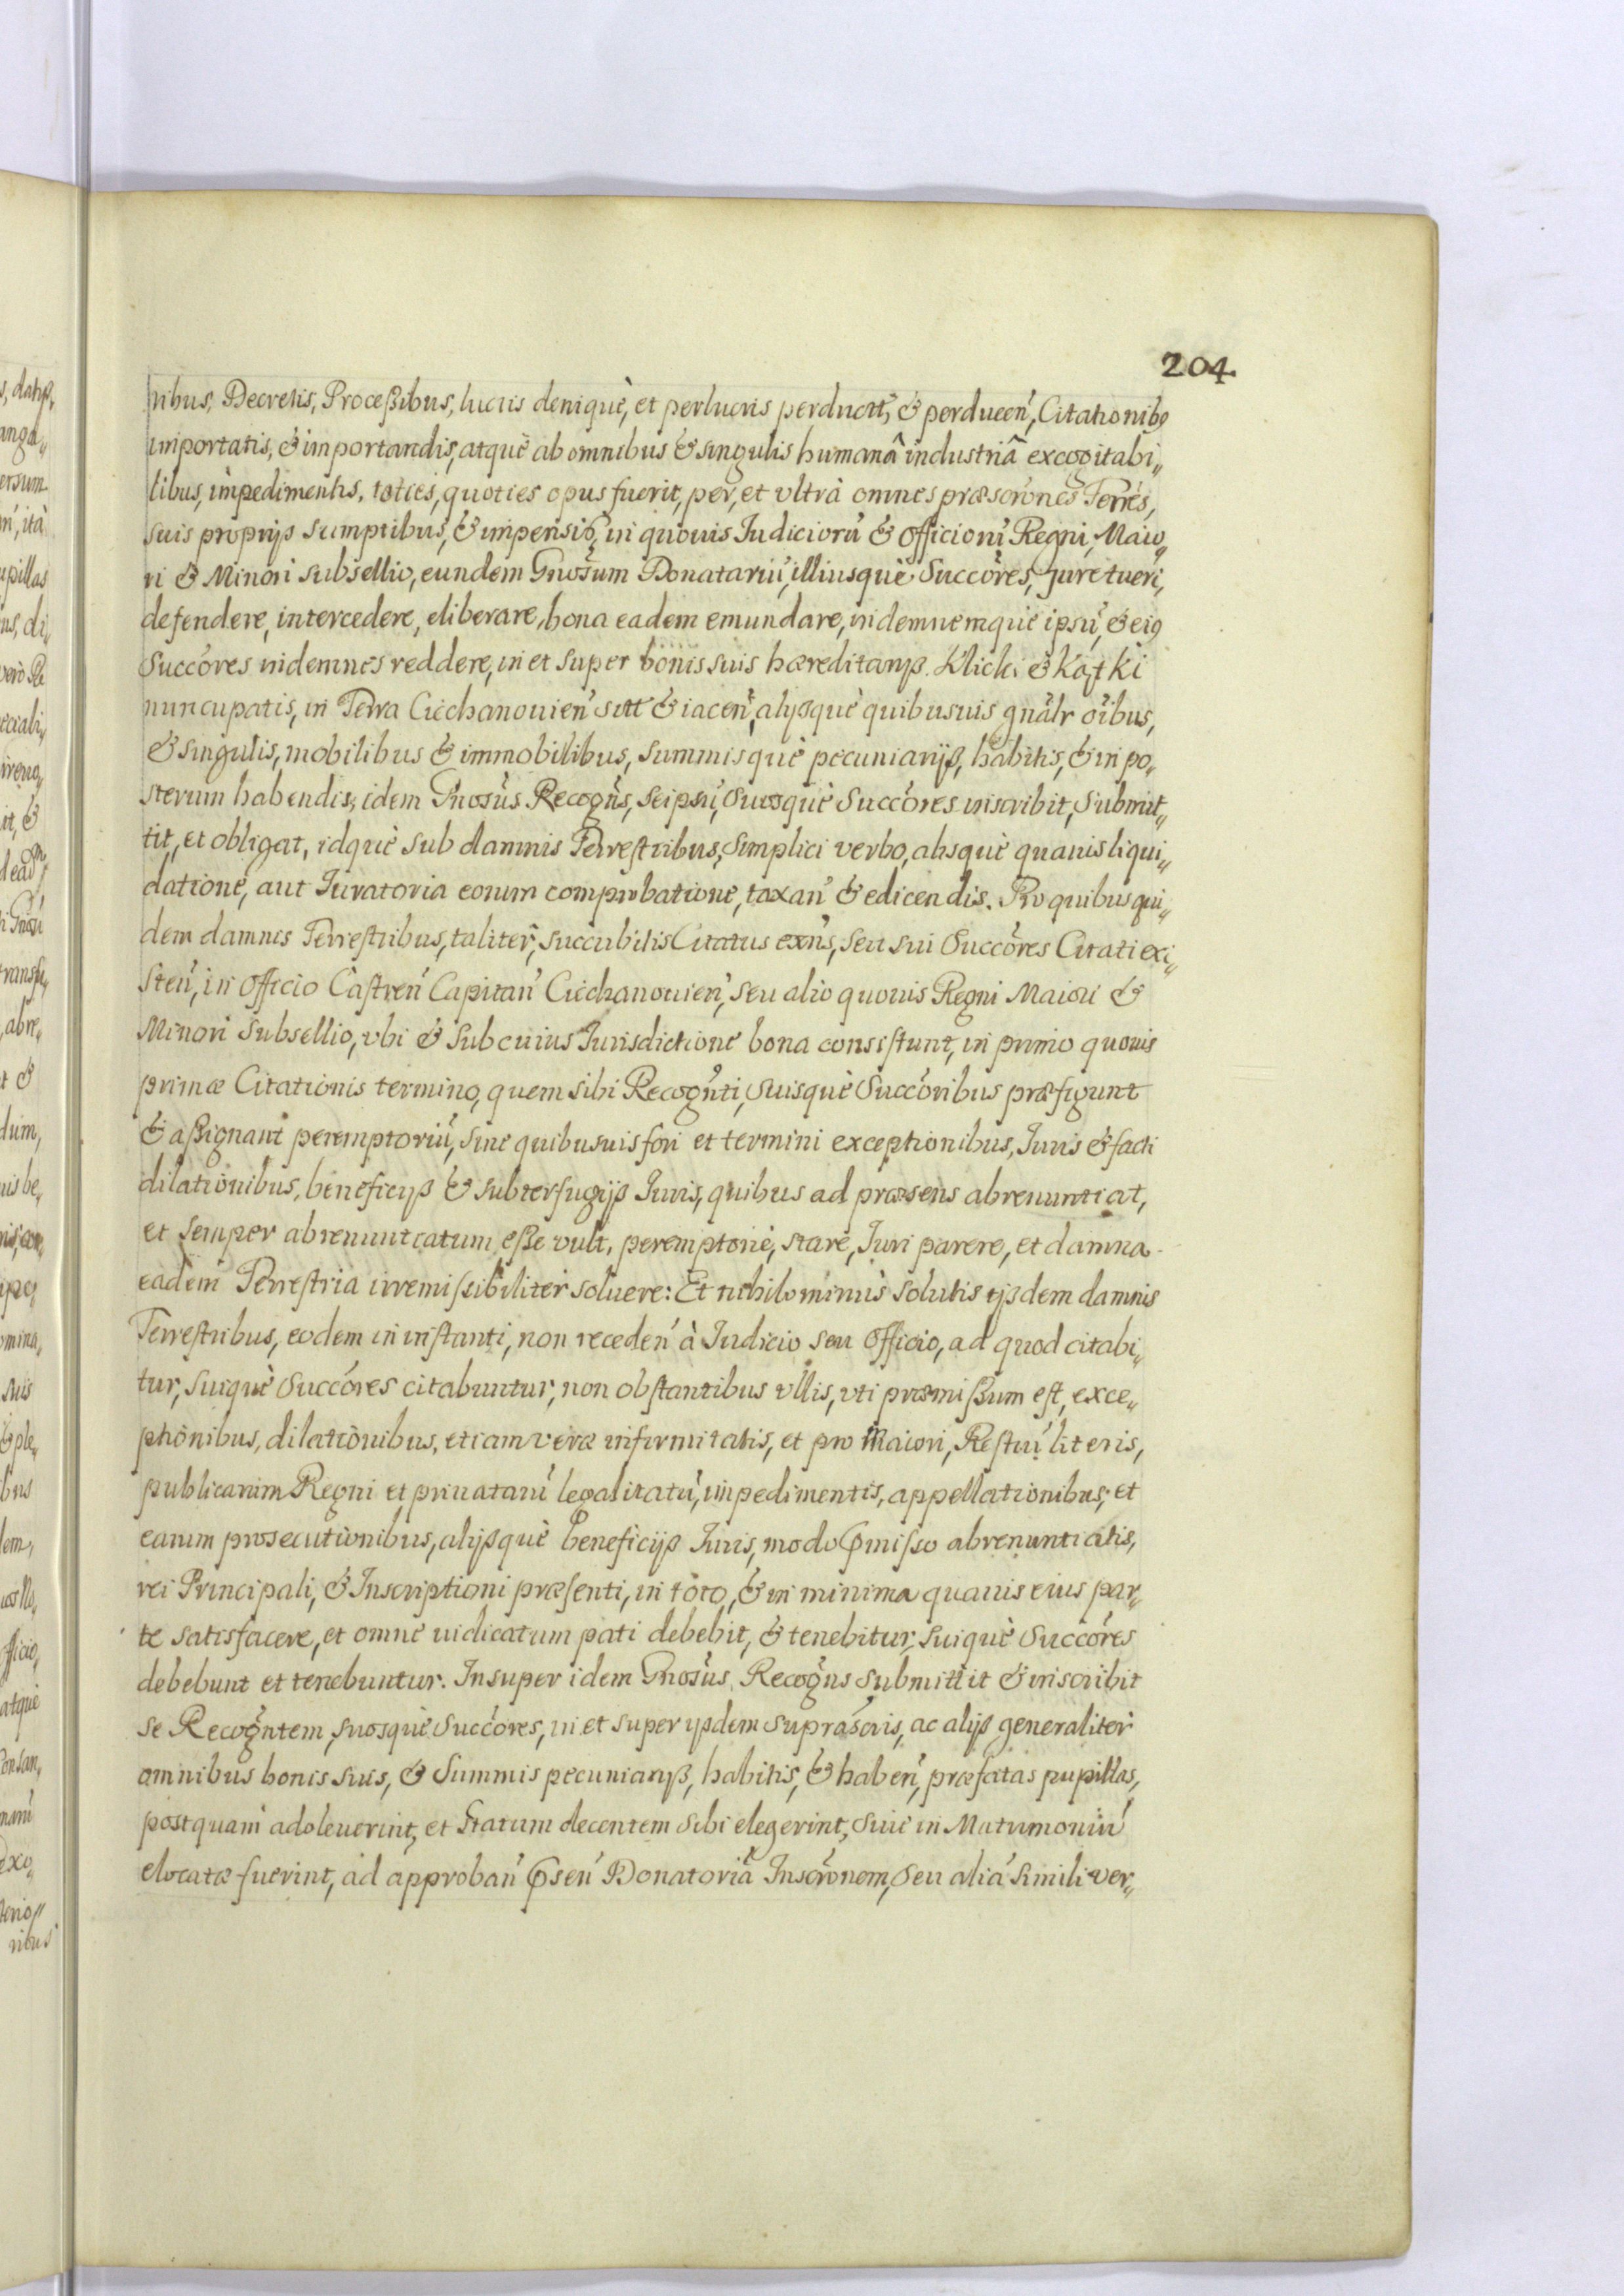 204.
nibus, Decretis, Proceßibus, lucris deniquè, et perlucris perductt, & perducen, Citationibꝰ
importatis, & importandis, atquè ab omnibus & singulis humanâ industriâ excogitabi„
libus, impedimentis, toties, quoties opus fuerit, per, et vltrà omnes præscrónes Terrés,
suis proprijs sumptibus, & impensis, in quouis Iudiciorú & Officiorú Regni, Maio„
ri & Minori subsellio, eundem Gnosum Donatariú, illiusquè Succóres, Jure tueri,
defendere, intercedere, eliberare, bona eadem emundare, indemnemquè ipsú, & eiꝰ
Succóres indemnes reddere, in et super bonis suis hæreditarijs. Klicki & Kątki
nuncupatis, in Terra Ciechanouien̛ sitt & iacen̛, alijsquè quibusuis gnálr oíbus,
& singulis, mobilibus & immobilibus, summisquè pecuniarijs, habitis, & in po„
sterum habendis, idem Gnosus Recogns, seipsú, Suosquè Succóres inscribit, Submit„
tit, et obligat, idquè sub damnis Terrestribus, simplici verbo, absquè quauis liqui„
datione, aut Iuratoria eorum comprobatione, taxan̛ & edicendis. Pro quibus qui„
dem damnis Terrestribus, taliter, succubitis Citatus exns, seu sui Succóres Citati exi„
sten̛, in Officio Castren̛ Capitan̛ Ciechanouien̛, seu alio quouis Regni Maiori &
Minori Subsellio, vbi & sub cuius Iurisdictione bona consistunt, in primo quouis
primæ Citationis termino, quem sibi Recognti, Suisquè Succóribus præfigunt
& aßignant peremptoriú, sine quibusuis fori et termini exceptionibus, Iuris & facti
dilationibus, beneficijs & subterfugijs Iuris, quibus ad præsens abrenuntiat,
et semper abrenuntiatum eße vult, peremptoriè, stare, Iuri parere, et damna
eadem Terrestria irremissibiliter soluere: Et nihilominùs solutis ijsdem damnis
Terrestribus, eodem in instanti, non receden̛ à Iudicio seu Officio, ad quod citabi„
tur, suiquè Succóres citabuntur, non obstantibus vllis, vti præmißum est, exce„
ptionibus, dilationibus, etiam veræ infirmitatis, et pro Maiori, Restuı̃ literis,
publicarum Regni et priuatarú legalitatú, impedimentis, appellationibus, et
earum prosecutionibus, alijsquè beneficijs Iuris, modo p̃misso abrenuntiatis,
rei Principali, & Inscriptioni præsenti, in toto, & in minima quauis eius par„
te satisfacere, et omne iudicatum pati debebit, & tenebitur, suiquè Succóres
debebunt et tenebuntur. Insuper idem Gnosus Recogns submittit & inscribit
se Recogntem, suosquè Succóres, in et super ijsdem suprascris, ac alijs generaliter
omnibus bonis suis, & Summis pecuniarijs, habitis, & haben̛, præfatas pupillas,
postquam adoleuerint, et Statum decentem sibi elegerint, siue in Matrimoniú
elocatæ fuerint, ad approban̛ p̃sen̛ Donatoriã Inscrónem, seu aliã simili ver„